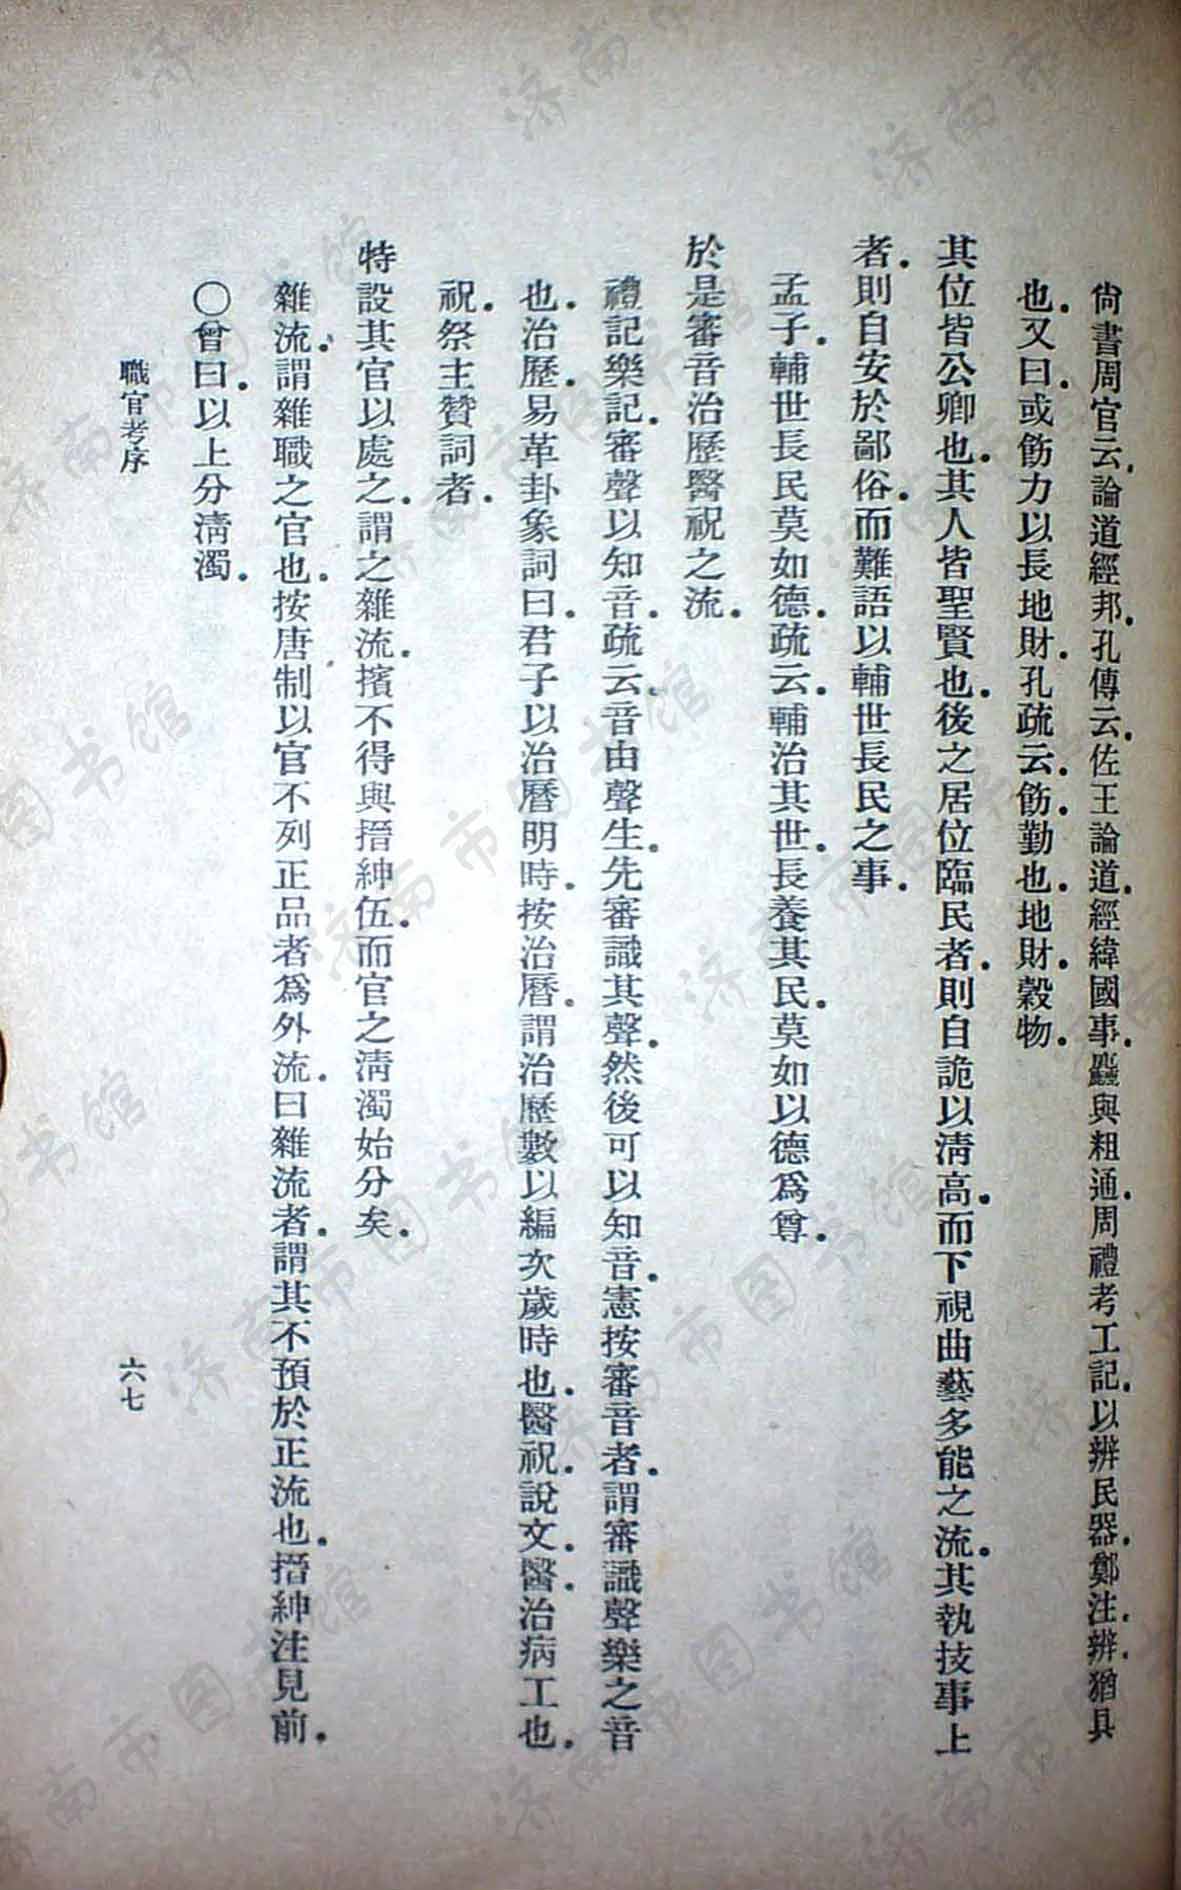 尙書周官云.論道經邦.孔傳云.佐王論道.經緯國事.麤與粗通.周禮考工記.以辨民器.鄭注.辨.猶具
也.又曰.或飭力以長地財.孔疏云.飭.勤也.地財.穀物.
其位皆公卿也.其人皆聖賢也.後之居位臨民者.則自詭以淸高.而下視曲藝多能之流.其執技事上
者.則自安於鄙俗.而難語以輔世長民之事.
孟子.輔世長民莫如德.疏云.輔治其世.長養其民.莫如以德爲尊.
於是審音治歷醫祝之流.
禮記樂記.審聲以知音.疏云.音由聲生.先審識其聲.然後可以知音.憲按審音者.謂審識聲樂之音
也.治歷.易革卦象詞曰.君子以治曆明時.按治曆.謂治歷數以編次歲時也.醫祝.說文.醫.治病工也.
祝.祭主贊詞者.
特設其官以處之.謂之雜流.擯不得與搢紳伍.而官之淸濁始分矣.
雜流.謂雜職之官也.按唐制以官不列正品者爲外流.曰雜流者.謂其不預於正流也.搢紳注見前.
○曾曰.以上分淸濁.
職官考序
六七
济南市图书馆